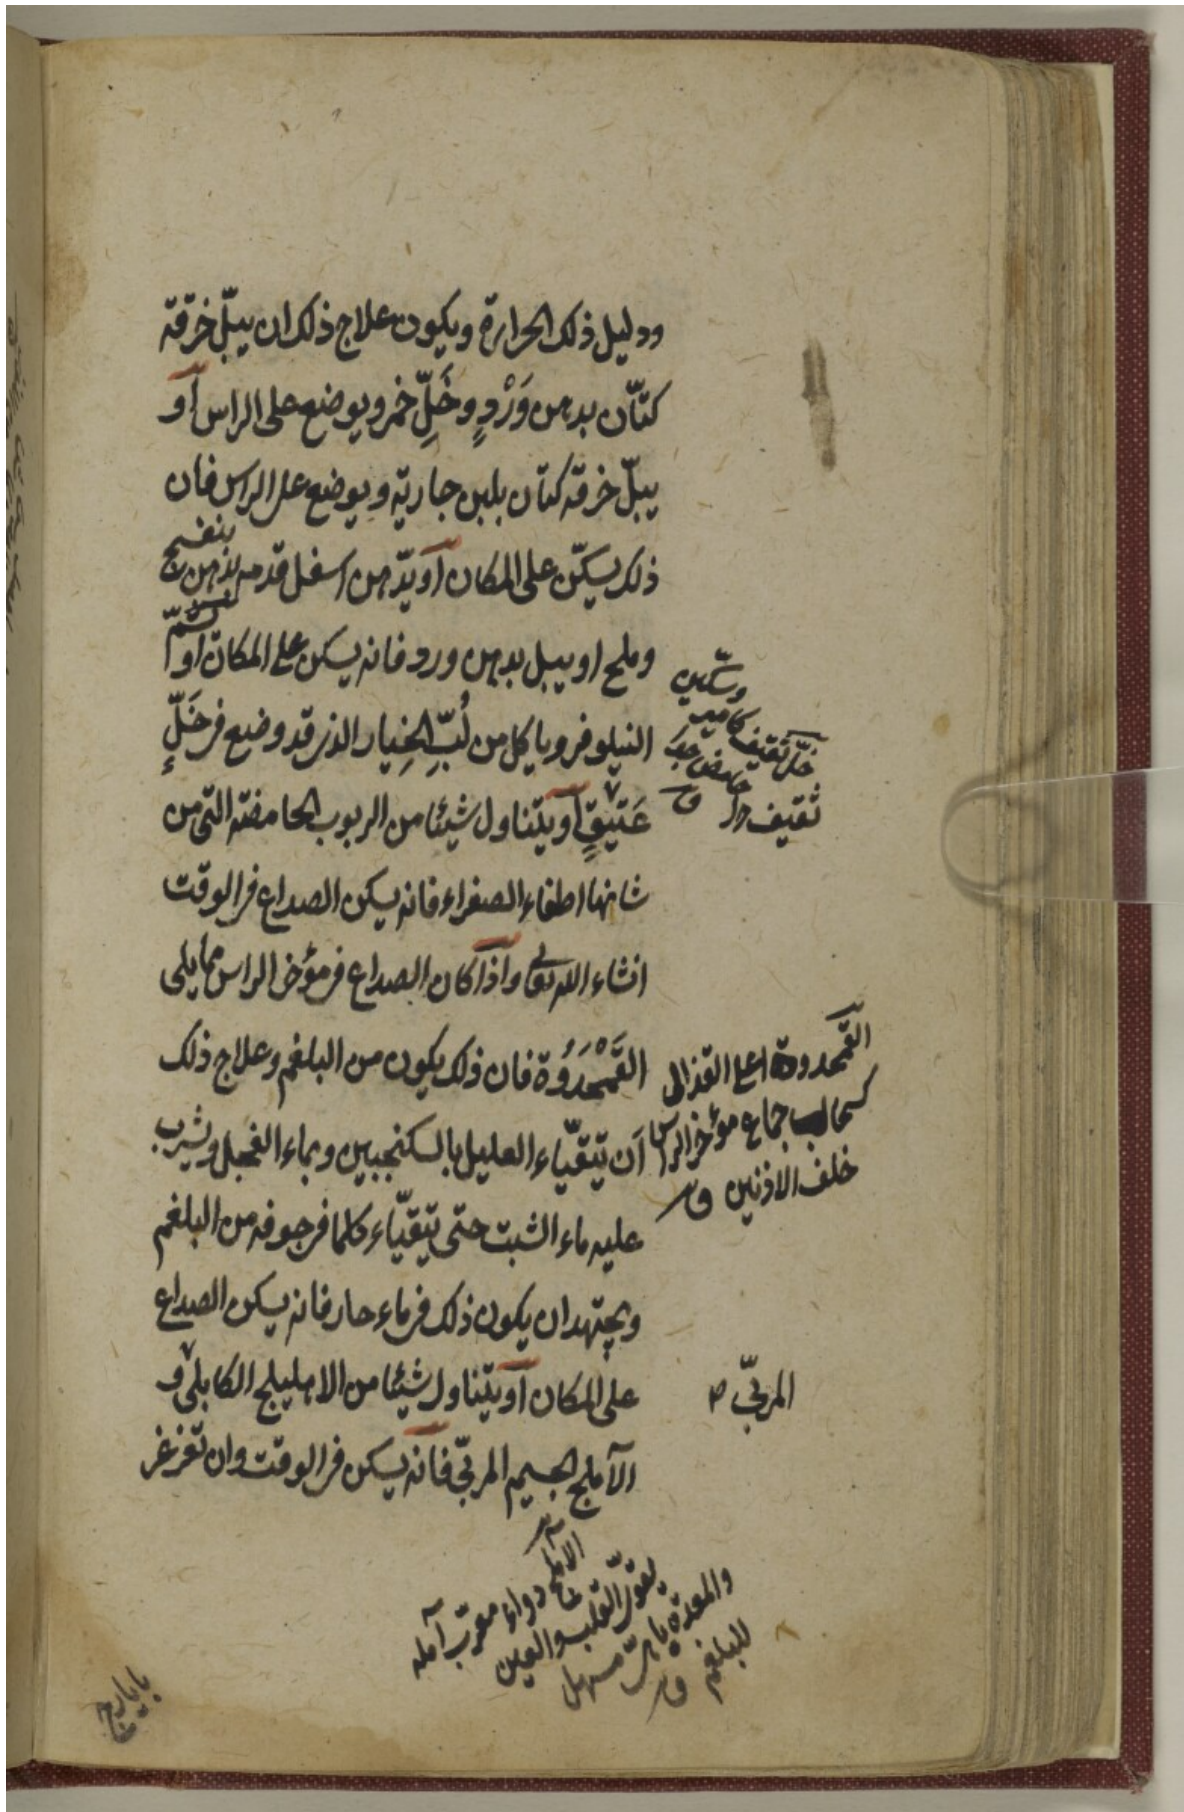 ودليل ذلك الحرارة ويكون علاج ذلك ان يبلّ خرقة
كتّان بدهن وَرْدٍ وخَلِّ خمر ويوضع على الراس أو
يبلّ خرقة كتان بلبن جارية ويوضع على الراس فان
ذلك يسكّن على المكان او يدّهن اسفل قدمه بدهن بنفسج
وملح او يبل بدهن ورد فانه يسكن على المكان او يشمّ
النيلوفر وياكل من لُبِّ الخِيار الذى قد وضع فى خَلٍّ
عَتيقٍ او يتناول شيئا من الربوب الحامضة التى من
شانها اطفاء الصفراء فانه يسكن الصداع فى الوقت
انشاء الله تعالى واذا كان الصداع فى مؤخر الراس مما يلى
القَمَحْدُوَة فان ذلك يكون من البلغم وعلاج ذلك
أن يتقيّاء العليل بالسكنجبين وبماء الفجل ويشرب
عليه ماء الشبت حتى يتقيّاء كلما فى جوفه من البلغم
ويجتهد ان يكون ذلك فى ماء حار فانه يسكن الصداع
على المكان او يتناول شيئا من الاهليلج الكابلى و
الآملج الجسيم المربّى فانه يسكن فى الوقت وان تغرغر
خلّ ثقيف كامير
وسكّين
حامض جدا
ثقيف ق
القمحدوة اعلى القذال
كسحاب جماع مؤخر الراس
خلف الاذنين ق
المربّى ص
الآملج دواء معرّب آمله
يقوّى القلب والعين
والمعدة مسهل
للبلغم ق
بايارج